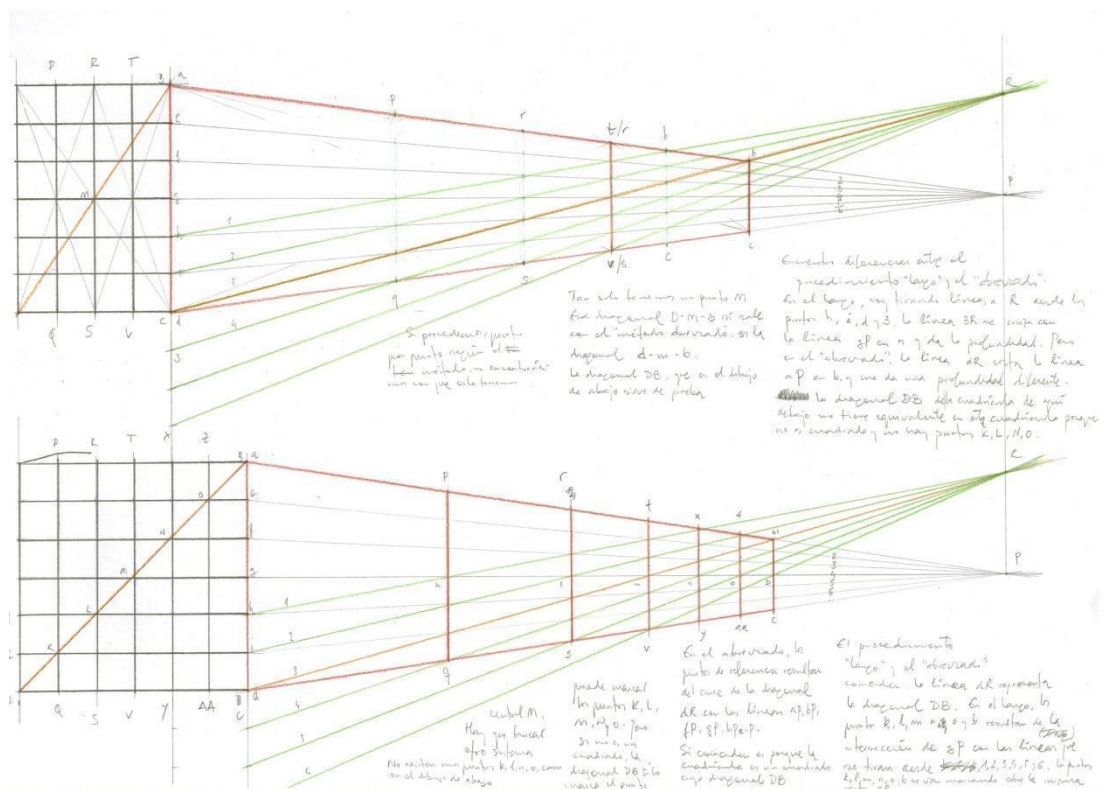 P R T
B a
p
r
t/r
b
b
R
P
M
1
2
3
4
C d
Q S V
q
s
v/s
c
c
Si procedemos punto
por punto según el
método, no encontra
mos con que solo tenemos
Tan solo tenemos un punto M
Esa diagonal D-M-B si sale
con el "método abreviado. es la
diagonal d-m-b.
la diagonal DB, que en el dibujo
de abajo sirve de
Encuentro diferencias entre el
procedimiento "largo" y el "abreviado".
En el largo, voy tirando líneas a R desde los
puntos h, i, d y 3. la línea 3R se cruza con
la línea gP en n y da la profundidad. Pero
en el "abreviado", la línea dR corta la línea
aP en b, y me da una profundidad diferente.
la diagonal DB de la cuadrícula de aquí
debajo no tiene equivalente en esta cuadrícula porque
no es cuadrado y no hay puntos K, L, N, O.
P R T X Z
B a
p
r
t
x
R
P
O
N
M
L
K
1
2
3
4
5
Q S V Y AA
q
s
v
y
aa
c
central M.
Hay que buscar
otro sistema
No existen los puntos k, l, n, o, como
en el dibujo de abajo
puede marcar
los puntos K, L,
M, N, O. Pero
si no es un
cuadrado, la
diagonal DB solo
marca el punto
En el abreviado, los
puntos de referencia resultan
del cruce de la diagonal
dR con las líneas aP, eP,
fP, gP, hP e iP.
Si coinciden es porque la
cuadrícula es un cuadrado
cuya diagonal DB
El procedimiento
"largo" y el "abreviado"
coinciden. la línea dR representa
la diagonal DB. En el largo, los
puntos k, l, m, n, o y b resultan de la
intersección de gP con las líneas que
se tiran desde 1, 2, 3, 4, 5, 6. los puntos
k, l, m, n, o, b se van marcando sobre la misma